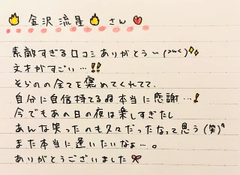 金沢 流星🔥さん❤
素敵すぎる口コミありがとう〜
文才がすごい…!!
そらの全てを褒めてくれてて.
自分に自信持てるね本当に感謝…!
今でもあの日の夜は楽しすぎたし
あんな笑ったのも久々だったなって思う(笑)
また本当に逢いたいなぁー。
ありがとうございました🎀